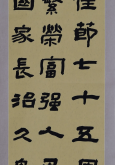 佳節七十五周
繁榮富強人
國家長治久